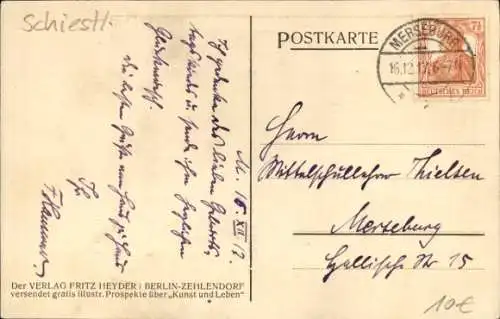 Schiestl.
POSTKARTE
MERSEBURG
16.12.17. 6-7 N
7½
DEUTSCHES REICH
M. 16. XII 17.
Ich gedenke des lieben Geburts-
tagskindes u. sende ihm herzlichen
Glückwunsch.
Die besten Grüße von Haus zu Haus
Ihr
Herrn
Mittelschullehrer Thielsen
Merseburg
Hallische Str 15
Der VERLAG FRITZ HEYDER / BERLIN-ZEHLENDORF
versendet gratis illustr. Prospekte über „Kunst und Leben"
10€